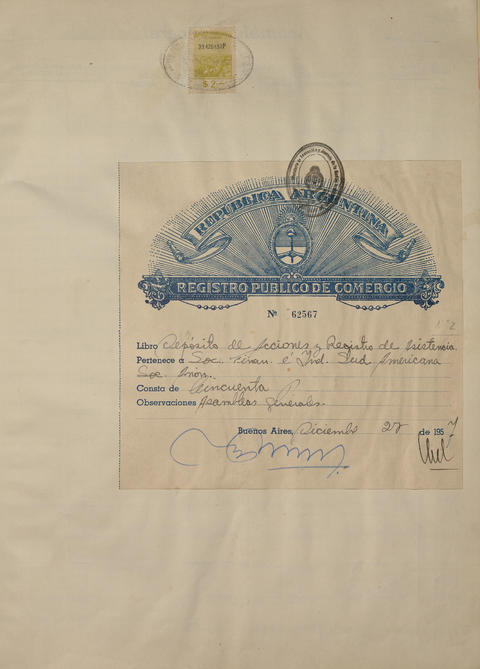 $ 2
REPUBLICA ARGENTINA
REGISTRO PUBLICO DE COMERCIO
Nº 62567
Libro Depósito de Acciones y Registro de Asistencia
Pertenece a Soc. Finan. é Ind. Sud Americana
Soc. Anón.
Consta de Cincuenta
Observaciones Asambleas Generales
Buenos Aires, Diciembre 27 de 1957